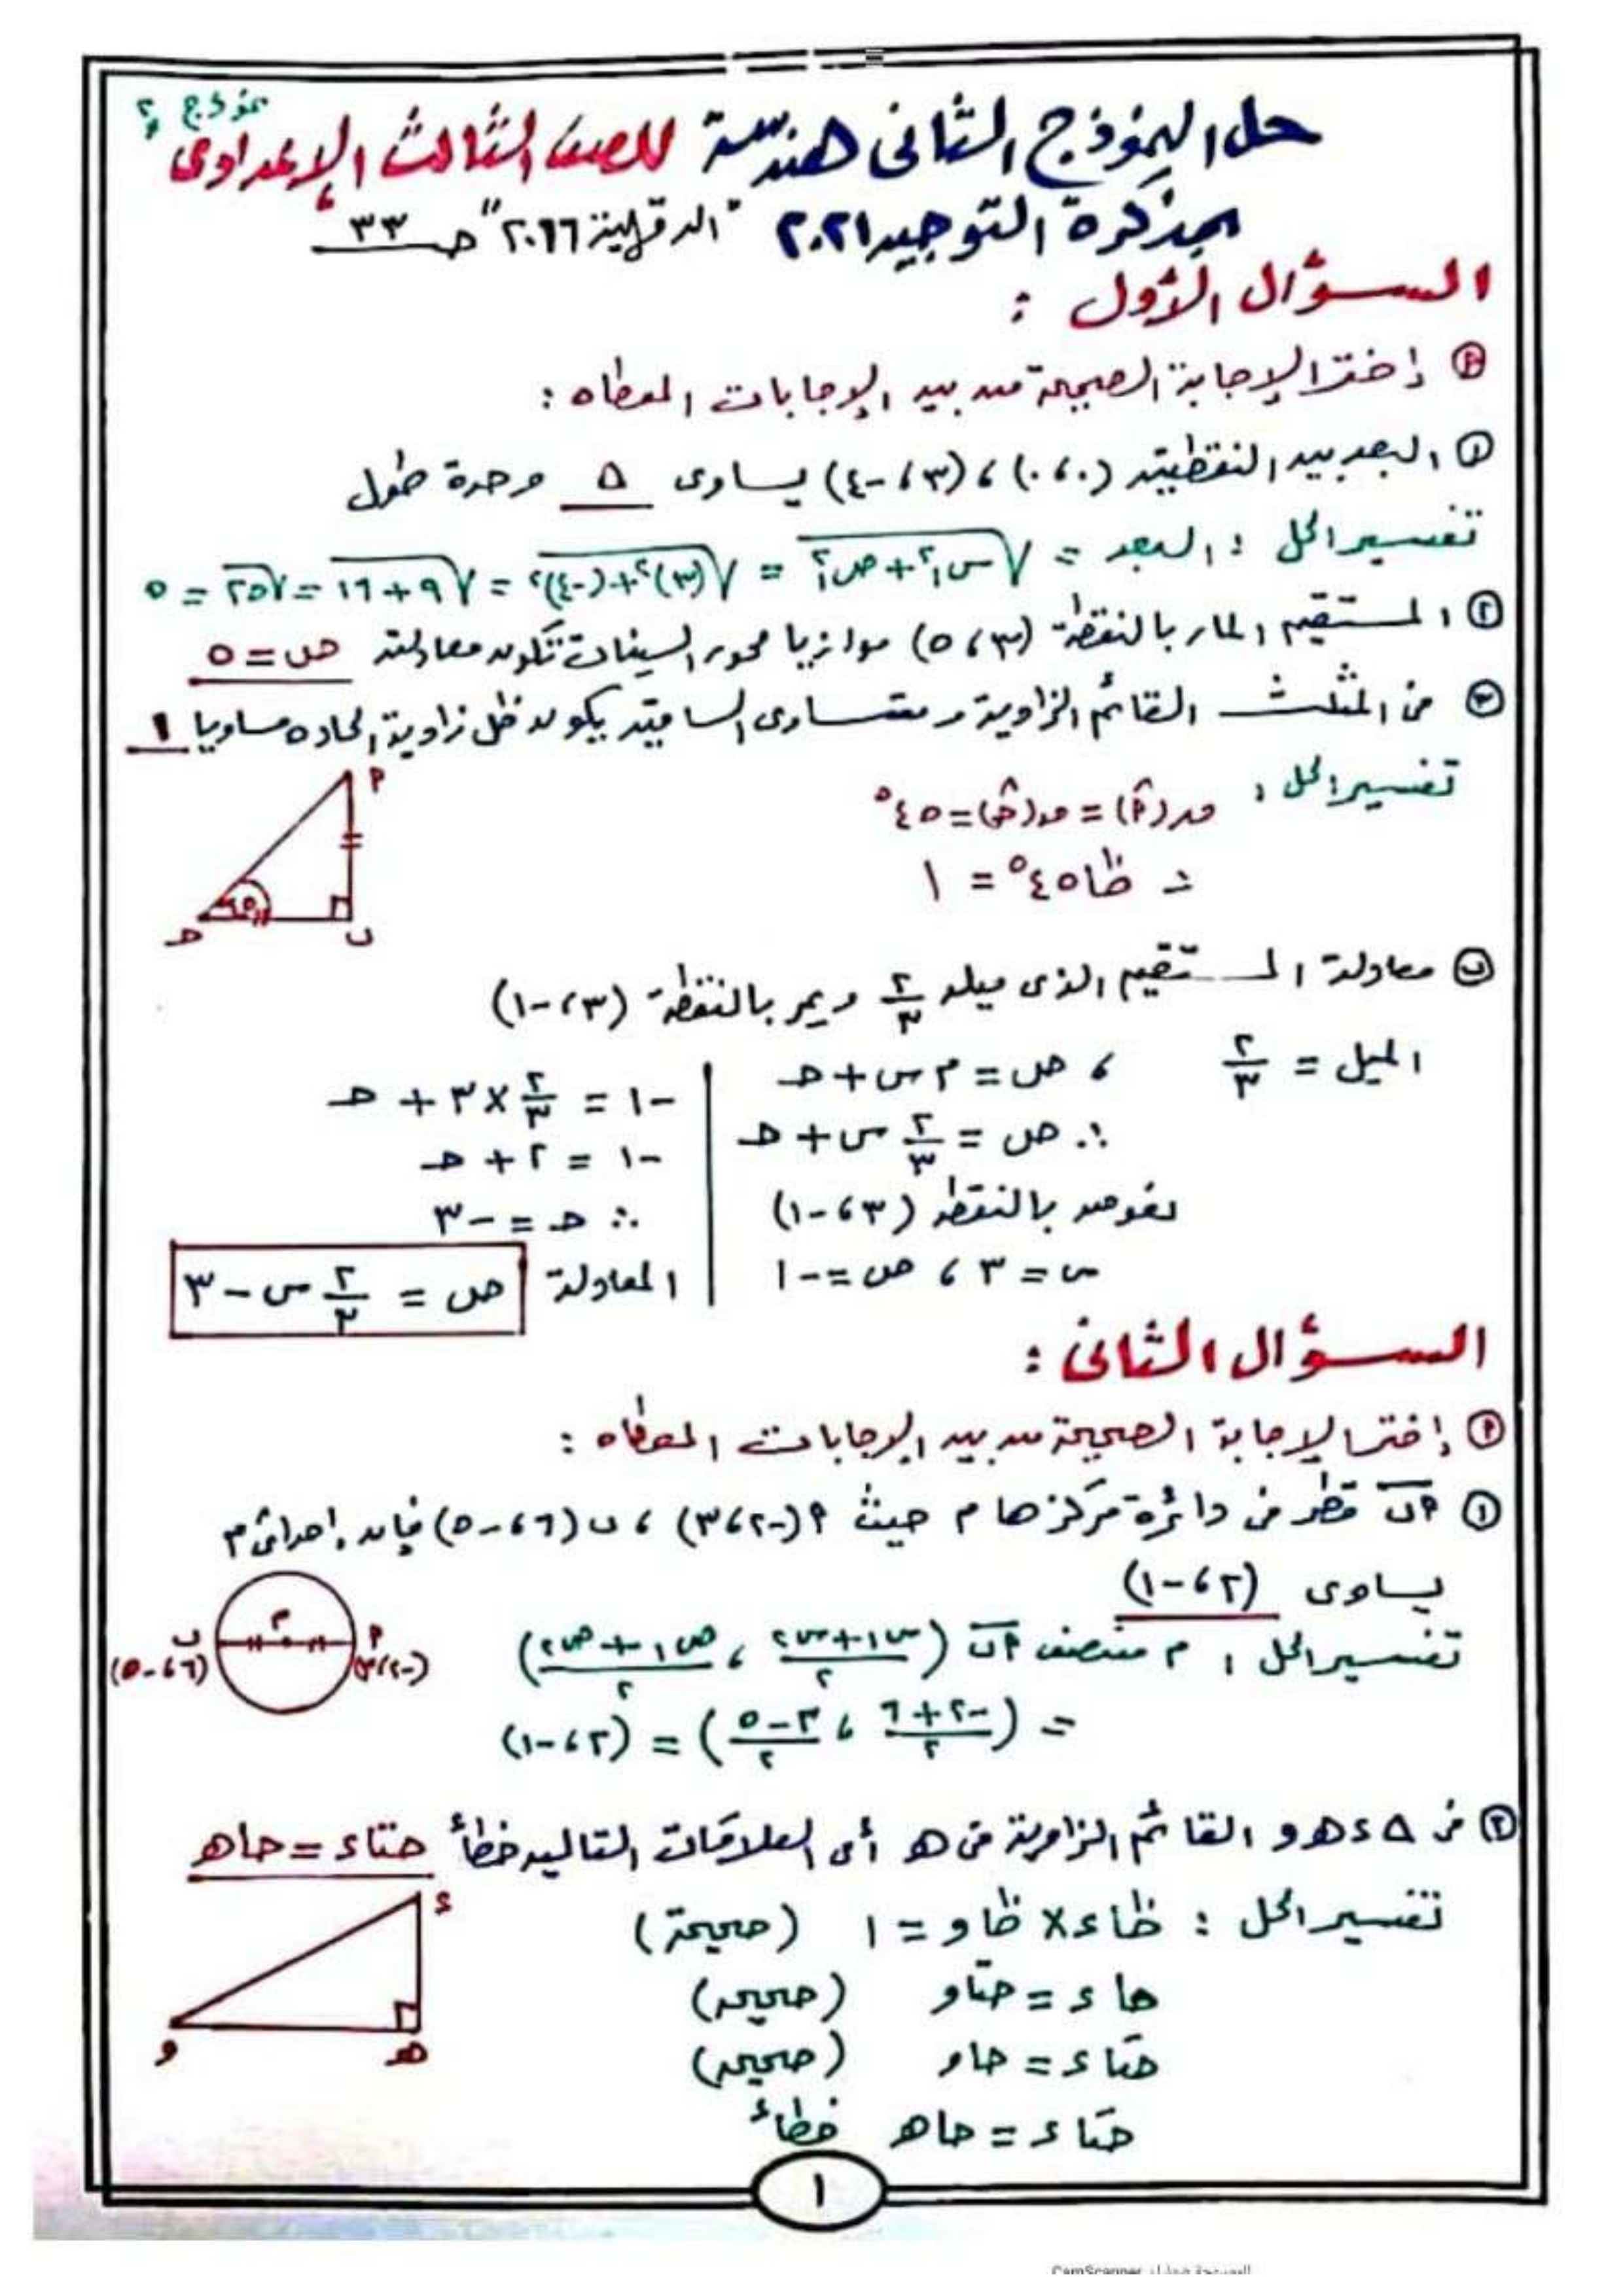 نموذج ٢
حل النموذج الثانى هندسة للصف الثالث الإعدادى
بمذكرة التوجيه ٢٠٢١ "الدقهلية ٢٠١٦" صـ ٣٣
السؤال الأول :
أ إختر الإجابة الصحيحة من بين الإجابات المعطاه :
١ البعد بين النقطتين (٠، ٠) ، (٣، -٤) يساوى ٥ وحدة طول
تفسير الحل : البعد = √(س١² + ص١²) = √((٣)² + (-٤)²) = √(٩ + ١٦) = √٢٥ = ٥
٢ المستقيم المار بالنقطة (٣، ٥) موازيا محور السينات تكون معادلته ص = ٥
٣ فى المثلث القائم الزاوية ومتساوى الساقين يكون ظل زاويته الحاده مساويا ١
تفسير الحل : ق(أ^) = ق(حـ^) = ٤٥°
أ
∴ ظا ٤٥° = ١
٤٥
حـ ب
ب معادلة المستقيم الذى ميله ٢/٣ ويمر بالنقطة (٣، -١)
الميل = ٢/٣ ، ص = م س + حـ
-١ = ٢/٣ × ٣ + حـ
∴ ص = ٢/٣ س + حـ
-١ = ٢ + حـ
نعوض بالنقطة (٣، -١)
∴ حـ = -٣
س = ٣ ، ص = -١
المعادلة ص = ٢/٣ س - ٣
السؤال الثانى :
أ إختر الإجابة الصحيحة من بين الإجابات المعطاه :
١ أب قطر فى دائرة مركزها م حيث أ(-٢، ٣) ، ب(٦، -٥) فإن إحداثى م
يساوى (٢، -١)
تفسير الحل : م منتصف أب (س١+س٢/٢ ، ص١+ص٢/٢)
ب م أ
(٦، -٥) (-٢، ٣)
= (-٢+٦/٢ ، ٣-٥/٢) = (٢، -١)
٢ فى Δ ء هـ و القائم الزاوية فى هـ أى العلاقات التالية خطأ حتا ء = حا هـ
تفسير الحل : ظا ء × ظا و = ١ (صحيحة)
ء
حا ء = حتا و (صحيحه)
و هـ
حتا ء = حا و (صحيحه)
حتا ء = حا هـ خطأ
١
الممسوحة ضوئيا بـ CamScanner